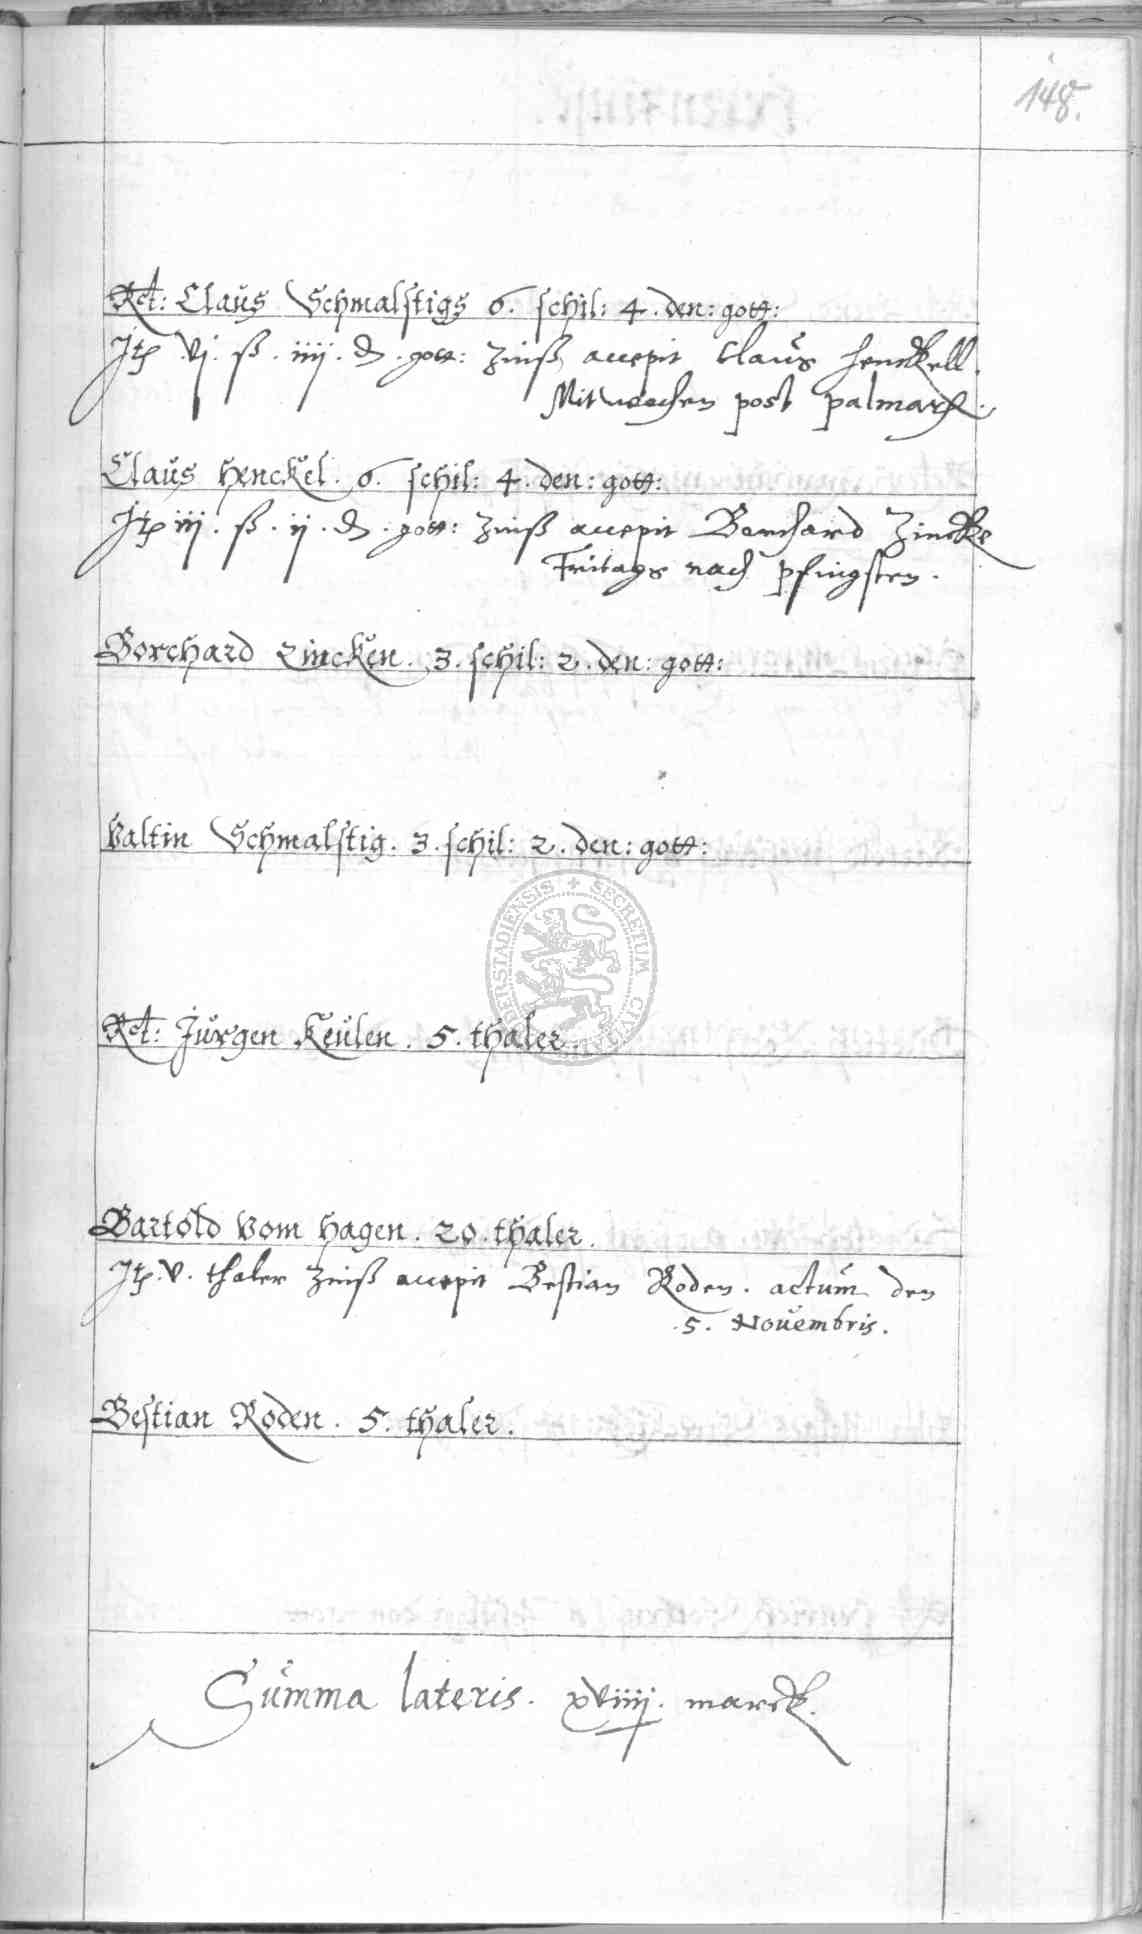 148.
Rct: Claus Schmalstigs 6. schil: 4. den: gott:
Jtp vj. ß. iiij. d. gott: Zinß accepit Claus Henckell.
Mitwochen post palmarum.
Claus Henckel. 6. schil: 4. den: gott:
Jtp iij. ß. ij. d. gott: Zinß accepit Borchard Zincke
Fritags nach pfingsten.
Borchard Zincken. 3. schil: 2. den: gott:
Valtin Schmalstig. 3. schil: 2. den: gott:
Rct: Jurgen Keulen. 5. thaler.
Bartold Vom Hagen. 20. thaler.
Jtp. v. thaler Zinß accepit Bestian Roden. actum den
5. Novembris.
Bestian Roden. 5. thaler.
Summa lateris. xviiij. marck.
SECRETUM